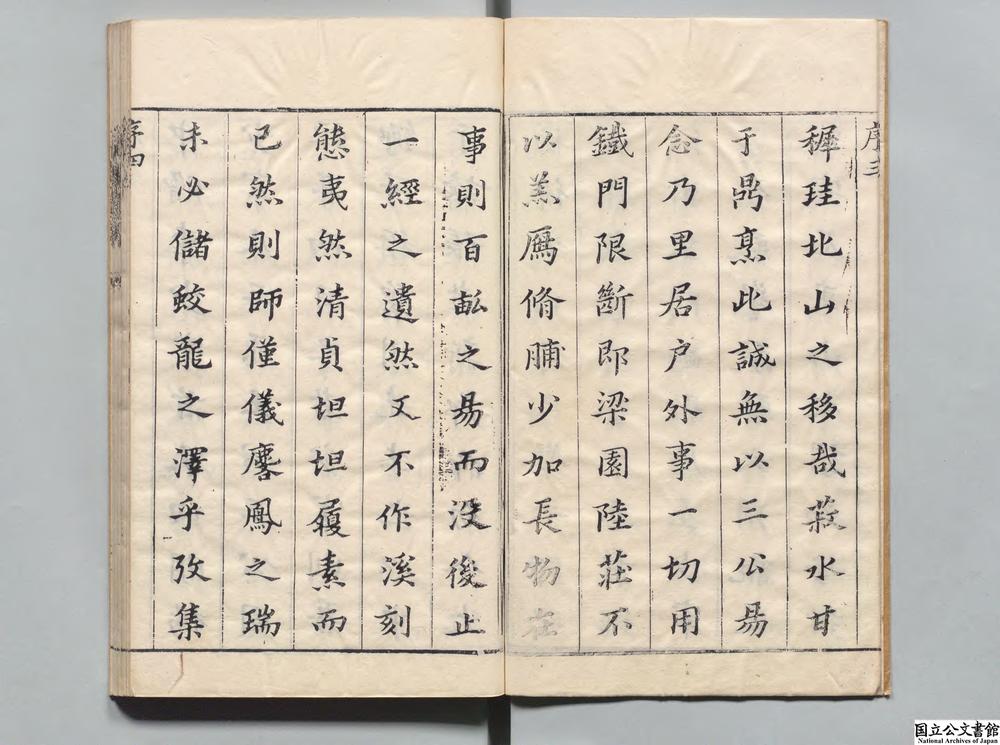 序三
稺珪北山之移哉菽水甘
于鼎烹此誠無以三公易
念乃里居户外事一切用
鐵門限斷即梁園陸莊不
以羔鴈脩脯少加長物在
事則百畝之易而没後止
一經之遺然又不作溪刻
態夷然清貞坦坦履素而
已然則師僅儀麐鳳之瑞
未必儲蛟龍之澤乎攷集
序四
国立公文書館
National Archives of Japan